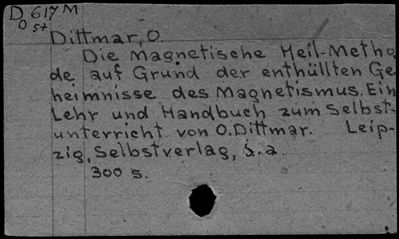 D 617 M
O st
Dittmar, O.
Die Magnetische Heil-Metho
de auf Grund der enthüllten Ge
heimnisse des Magnetismus. Ein
Lehr und Handbuch zum Selbst-
unterricht von O. Dittmar. Leip-
zig, Selbstverlag, s.a.
300 s.